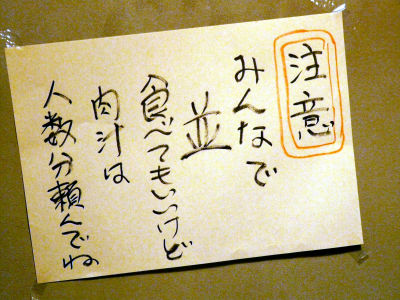 注意
みんなで
並
食べてもいいけど
肉汁は
人数分頼んでね